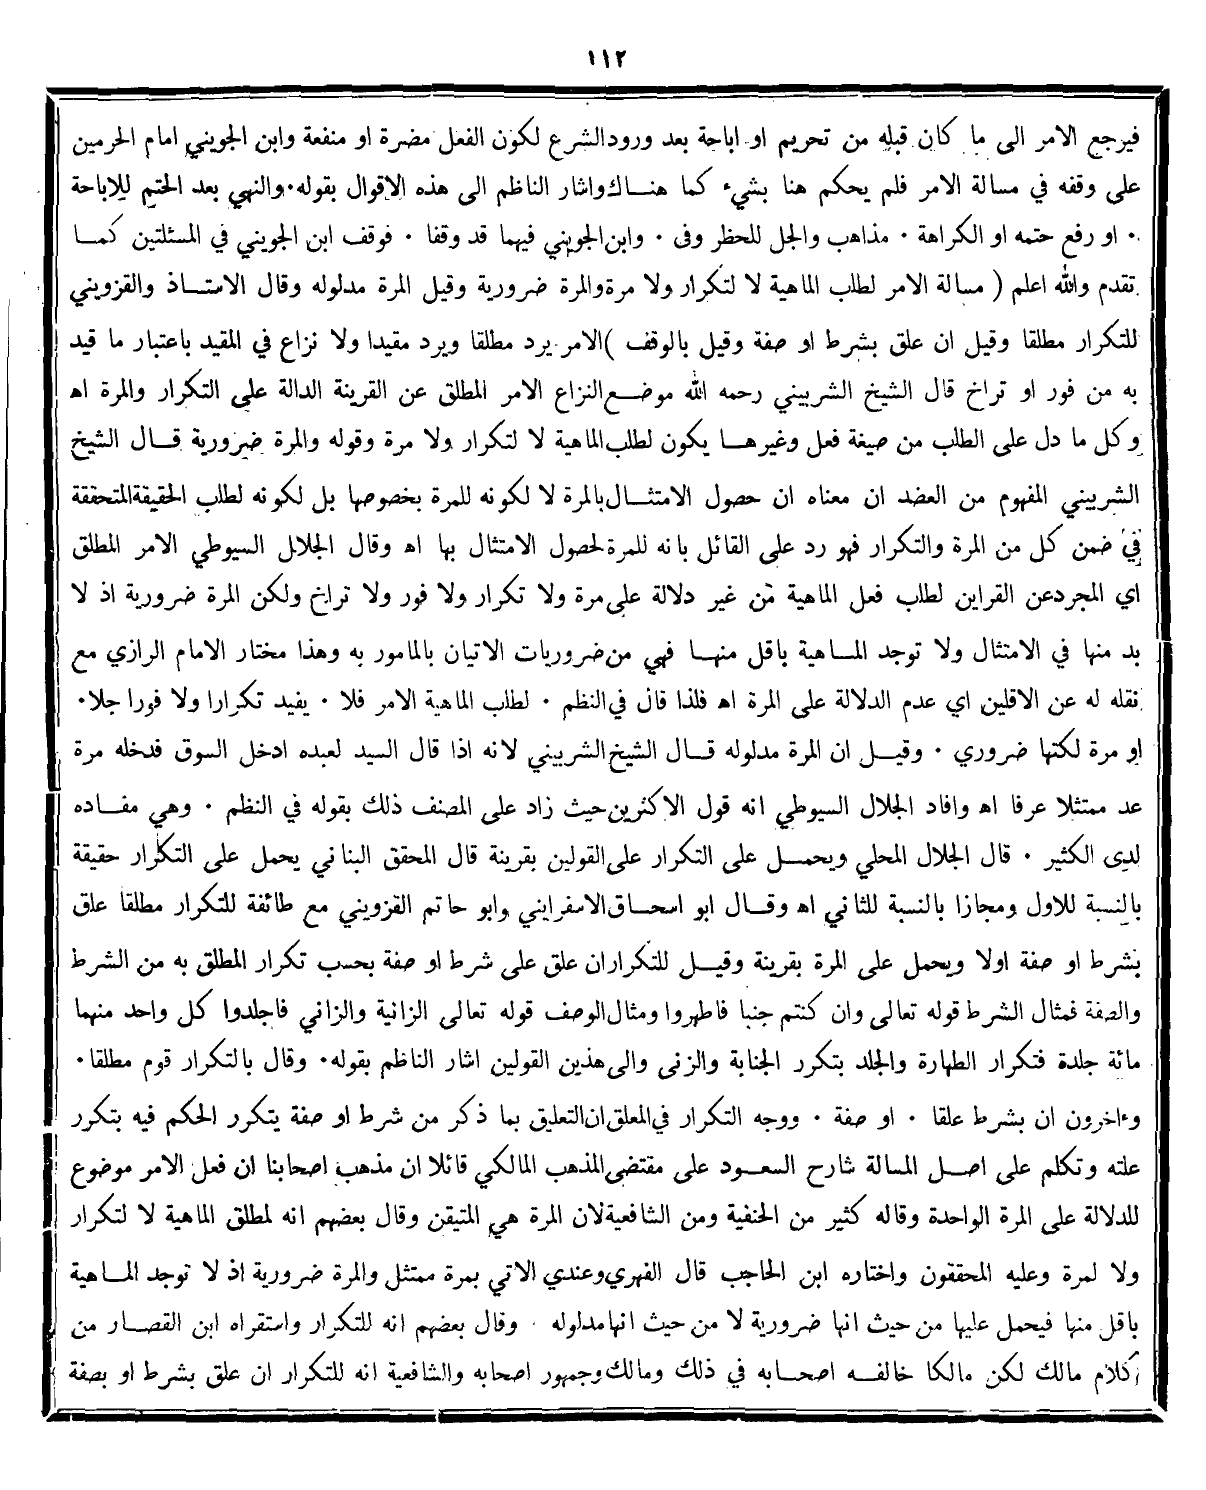 ١١٢
فيرجع الامر الى ما كان قبله من تحريم او اباحة بعد ورود الشرع لكون الفعل مضرة او منفعة وابن الجويني امام الحرمين
على وقفه في مسالة الامر فلم يحكم هنا بشيء كما هنـاك واشار الناظم الى هذه الاقوال بقوله • والنهي بعد الحتم للاباحة
• او رفع حتمه او الكراهة • مذاهب والجل للحظر وفى • وابن الجويني فيهما قد وقفا • فوقف ابن الجويني في المسئلتين كمـا
تقدم والله اعلم ( مسالة الامر لطلب الماهية لا لتكرار ولا مرة والمرة ضرورية وقيل المرة مدلوله وقال الاستـاذ والقزويني
للتكرار مطلقا وقيل ان علق بشرط او صفة وقيل بالوقف ) الامر يرد مطلقا ويرد مقيدا ولا نزاع في المقيد باعتبار ما قيد
به من فور او تراخ قال الشيخ الشربيني رحمه الله موضـع النزاع الامر المطلق عن القرينة الدالة على التكرار والمرة اه
وكل ما دل على الطلب من صيغة فعل وغيرهـا يكون لطلب الماهية لا لتكرار ولا مرة وقوله والمرة ضرورية قـال الشيخ
الشربيني المفهوم من العضد ان معناه ان حصول الامتثـال بالمرة لا لكونه للمرة بخصوصها بل لكونه لطلب الحقيقة المتحققة
في ضمن كل من المرة والتكرار فهو رد على القائل بانه للمرة لحصول الامتثال بها اه وقال الجلال السيوطي الامر المطلق
اي المجرد عن القراين لطلب فعل الماهية من غير دلالة على مرة ولا تكرار ولا فور ولا تراخ ولكن المرة ضرورية اذ لا
بد منها في الامتثال ولا توجد المـاهية باقل منهـا فهي من ضروريات الاتيان بالمامور به وهذا مختار الامام الرازي مع
نقله له عن الاقلين اي عدم الدلالة على المرة اه فلذا قال في النظم • لطلب الماهية الامر فلا • يفيد تكرارا ولا فورا جلا •
او مرة لكنها ضروري • وقيـل ان المرة مدلوله قـال الشيخ الشربيني لانه اذا قال السيد لعبده ادخل السوق فدخله مرة
عد ممتثلا عرفا اه وافاد الجلال السيوطي انه قول الاكثرين حيث زاد على المصنف ذلك بقوله في النظم • وهي مفـاده
لدى الكثير • قال الجلال المحلي ويحمـل على التكرار على القولين بقرينة قال المحقق البناني يحمل على التكرار حقيقة
بالنسبة للاول ومجازا بالنسبة للثاني اه وقـال ابو اسحـاق الاسفرايني وابو حاتم القزويني مع طائفة للتكرار مطلقا علق
بشرط او صفة اولا ويحمل على المرة بقرينة وقيـل للتكرار ان علق على شرط او صفة بحسب تكرار المطلق به من الشرط
والصفة فمثال الشرط قوله تعالى وان كنتم جنبا فاطهروا ومثال الوصف قوله تعالى الزانية والزاني فاجلدوا كل واحد منهما
مائة جلدة فتكرار الطهارة والجلد بتكرر الجنابة والزنى والى هذين القولين اشار الناظم بقوله • وقال بالتكرار قوم مطلقا •
وءاخرون ان بشرط علقا • او صفة • ووجه التكرار في المعلق ان التعليق بما ذكر من شرط او صفة يتكرر الحكم فيه بتكرر
علته وتكلم على اصـل المسالة شارح السعـود على مقتضى المذهب المالكي قائلا ان مذهب اصحابنا ان فعل الامر موضوع
للدلالة على المرة الواحدة وقاله كثير من الحنفية ومن الشافعية لان المرة هي المتيقن وقال بعضهم انه لمطلق الماهية لا لتكرار
ولا لمرة وعليه المحققون واختاره ابن الحاجب قال الفهري وعندي الاتي بمرة ممتثل والمرة ضرورية اذ لا توجد المـاهية
باقل منها فيحمل عليها من حيث انها ضرورية لا من حيث انها مدلوله • وقال بعضهم انه للتكرار واستقراه ابن القصـار من
كلام مالك لكن مالكا خالفـه اصحـابه في ذلك ومالك وجمهور اصحابه والشافعية انه للتكرار ان علق بشرط او بصفة